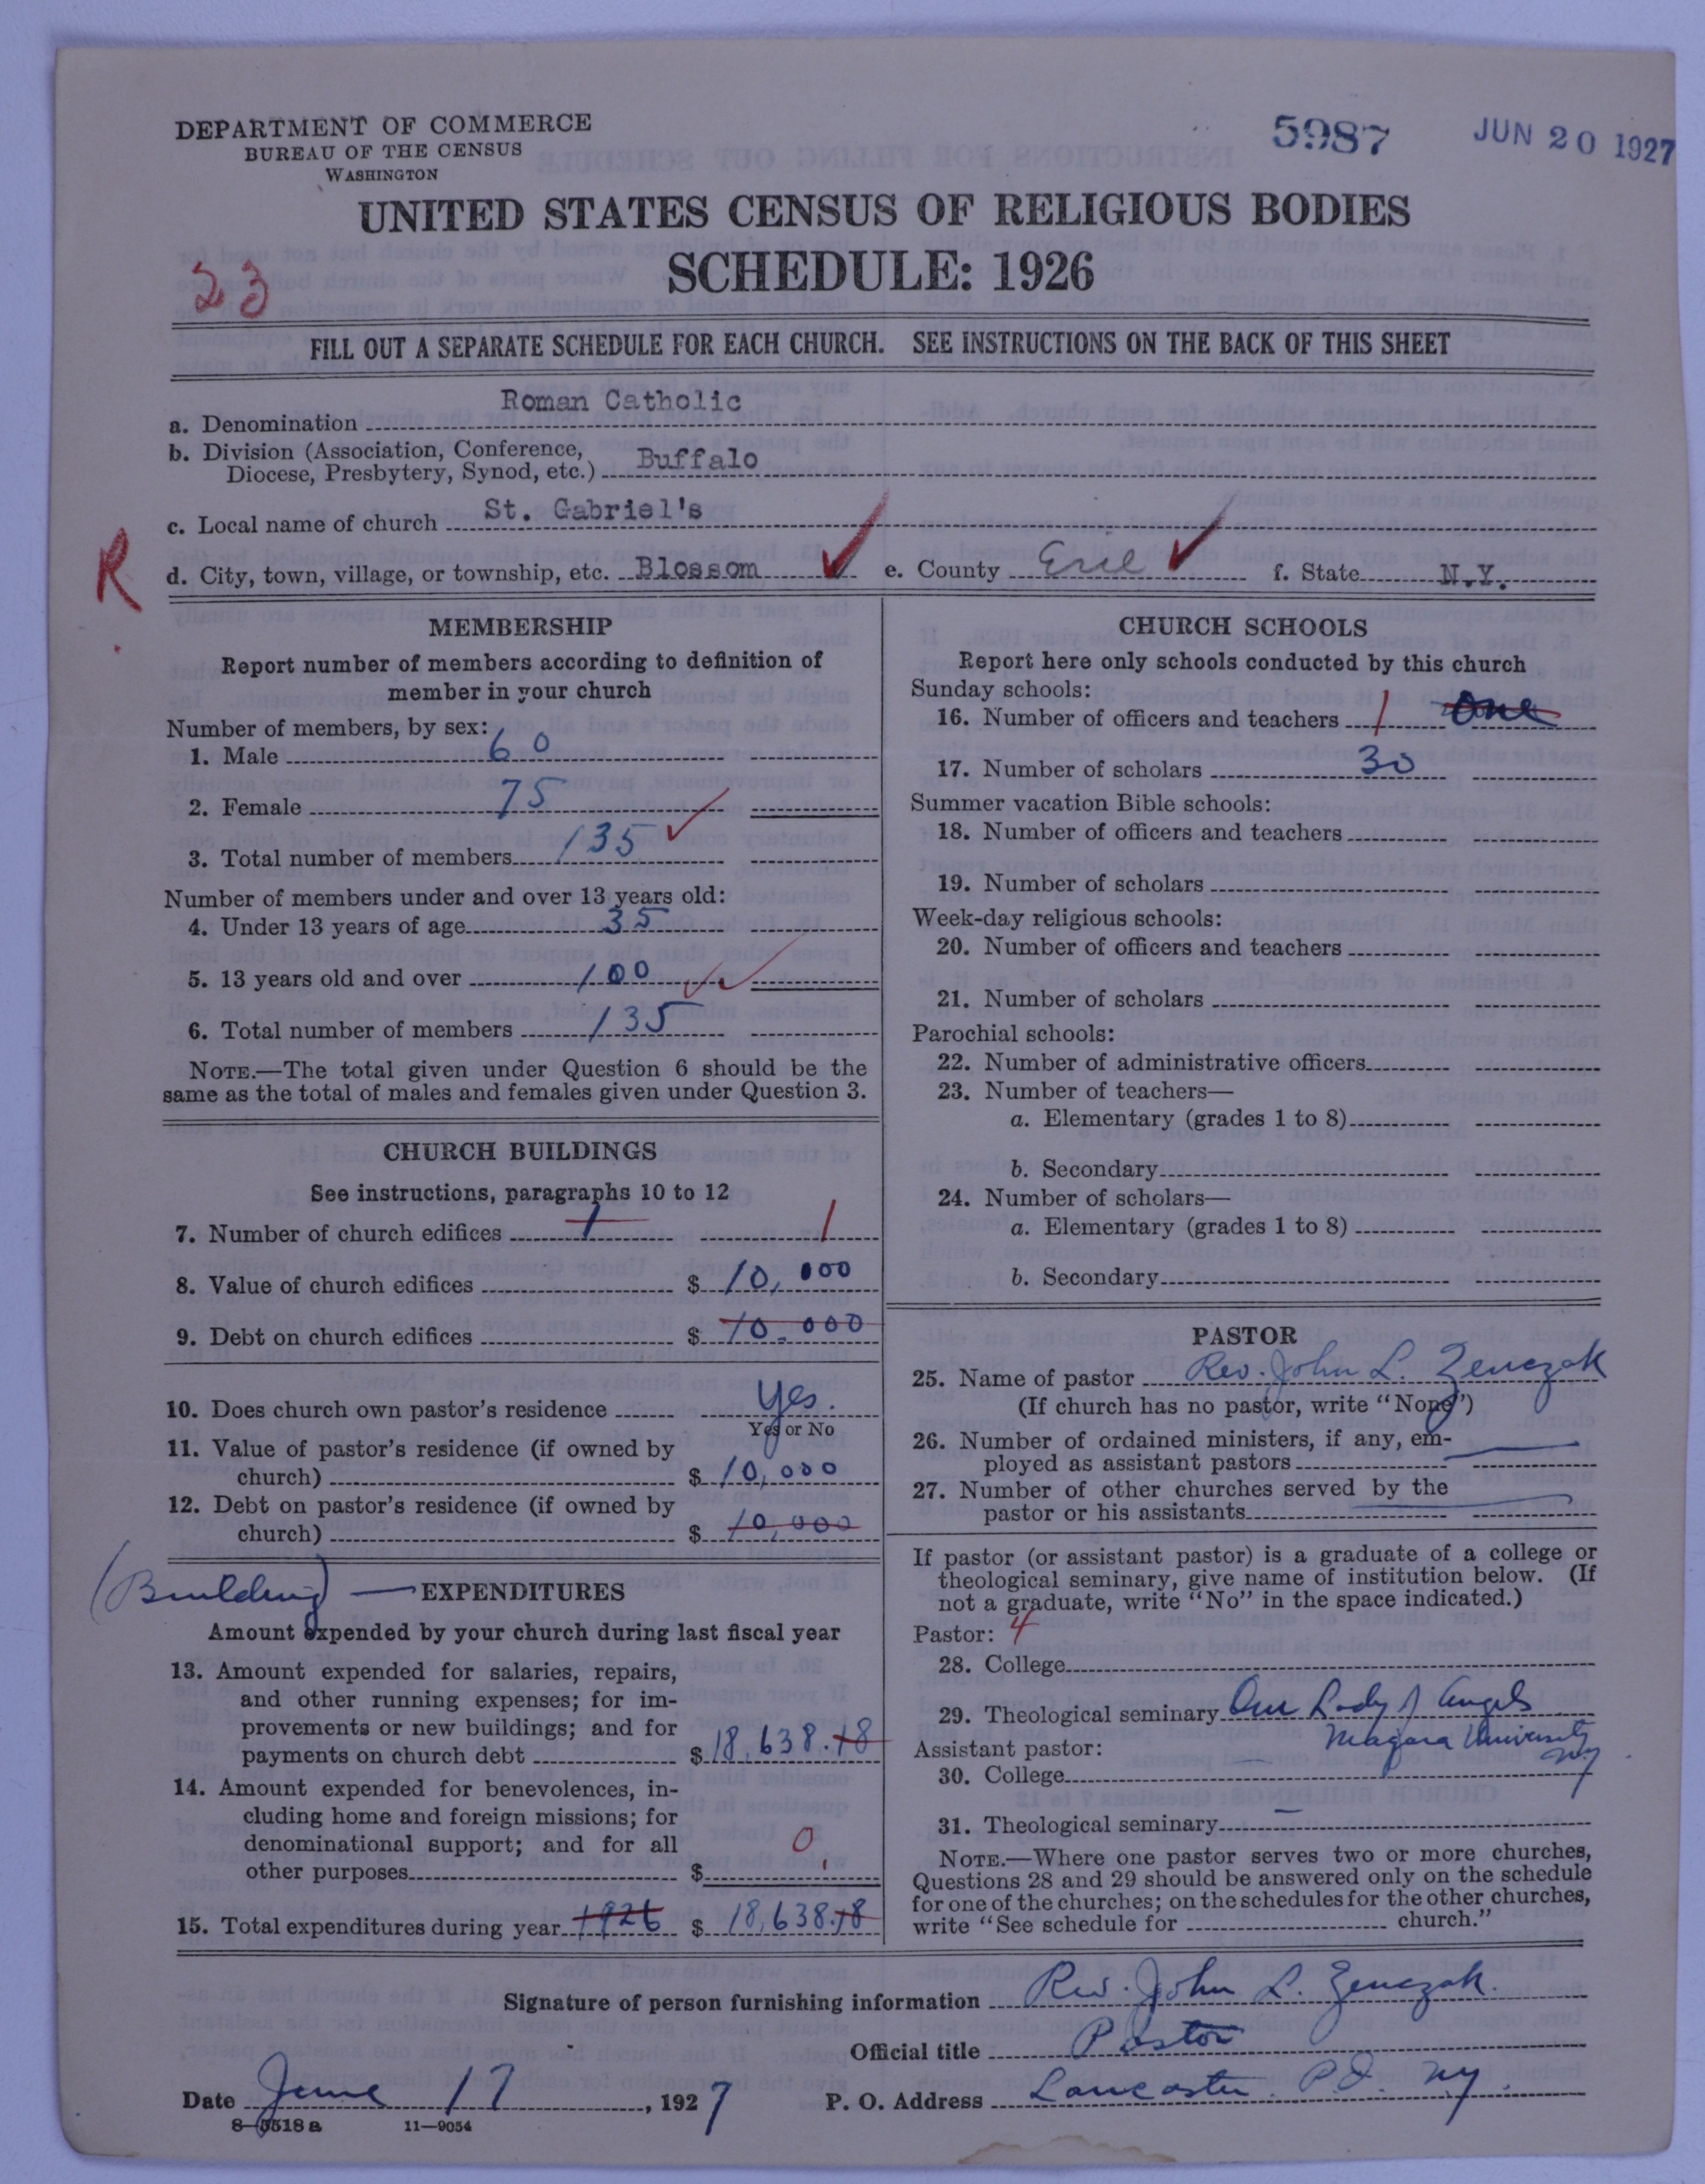 DEPARTMENT OF COMMERCE
BUREAU OF THE CENSUS
WASHINGTON
5987
JUN 20 1927
UNITED STATES CENSUS OF RELIGIOUS BODIES
SCHEDULE: 1926
23
FILL OUT A SEPARATE SCHEDULE FOR EACH CHURCH. SEE INSTRUCTIONS ON THE BACK OF THIS SHEET
a. Denomination Roman Catholic
b. Division (Association, Conference,
Diocese, Presbytery, Synod, etc.) Buffalo
c. Local name of church St. Gabriel's
R
d. City, town, village, or township, etc. Blossom e. County Erie f. State N.Y.
MEMBERSHIP
Report number of members according to definition of
member in your church
Number of members, by sex:
1. Male 60
2. Female 75
3. Total number of members 135
Number of members under and over 13 years old:
4. Under 13 years of age 35
5. 13 years old and over 100
6. Total number of members 135
NOTE.—The total given under Question 6 should be the
same as the total of males and females given under Question 3.
CHURCH BUILDINGS
See instructions, paragraphs 10 to 12
7. Number of church edifices 1 1
8. Value of church edifices $ 10,000
9. Debt on church edifices $ 10.000
10. Does church own pastor's residence Yes.
Yes or No
11. Value of pastor's residence (if owned by
church) $ 10,000
12. Debt on pastor's residence (if owned by
church) $ 10,000
(Building) — EXPENDITURES
Amount expended by your church during last fiscal year
13. Amount expended for salaries, repairs,
and other running expenses; for im-
provements or new buildings; and for
payments on church debt $ 18,638.18
14. Amount expended for benevolences, in-
cluding home and foreign missions; for
denominational support; and for all
other purposes $ 0
15. Total expenditures during year 1926 $ 18,638.18
CHURCH SCHOOLS
Report here only schools conducted by this church
Sunday schools:
16. Number of officers and teachers 1 One
17. Number of scholars 30
Summer vacation Bible schools:
18. Number of officers and teachers
19. Number of scholars
Week-day religious schools:
20. Number of officers and teachers
21. Number of scholars
Parochial schools:
22. Number of administrative officers
23. Number of teachers—
a. Elementary (grades 1 to 8)
b. Secondary
24. Number of scholars—
a. Elementary (grades 1 to 8)
b. Secondary
PASTOR
25. Name of pastor Rev. John L. Zenczak
(If church has no pastor, write "None")
26. Number of ordained ministers, if any, em-
ployed as assistant pastors
27. Number of other churches served by the
pastor or his assistants
If pastor (or assistant pastor) is a graduate of a college or
theological seminary, give name of institution below. (If
not a graduate, write "No" in the space indicated.)
Pastor: 4
28. College
29. Theological seminary Our Lady of Angels
Assistant pastor: Niagara University
30. College NY
31. Theological seminary
NOTE.—Where one pastor serves two or more churches,
Questions 28 and 29 should be answered only on the schedule
for one of the churches; on the schedules for the other churches,
write "See schedule for church."
Signature of person furnishing information Rev. John L. Zenczak.
Official title Pastor
Date June 17, 1927 P. O. Address Lancaster P.O. NY.
8-5518 a 11-9054